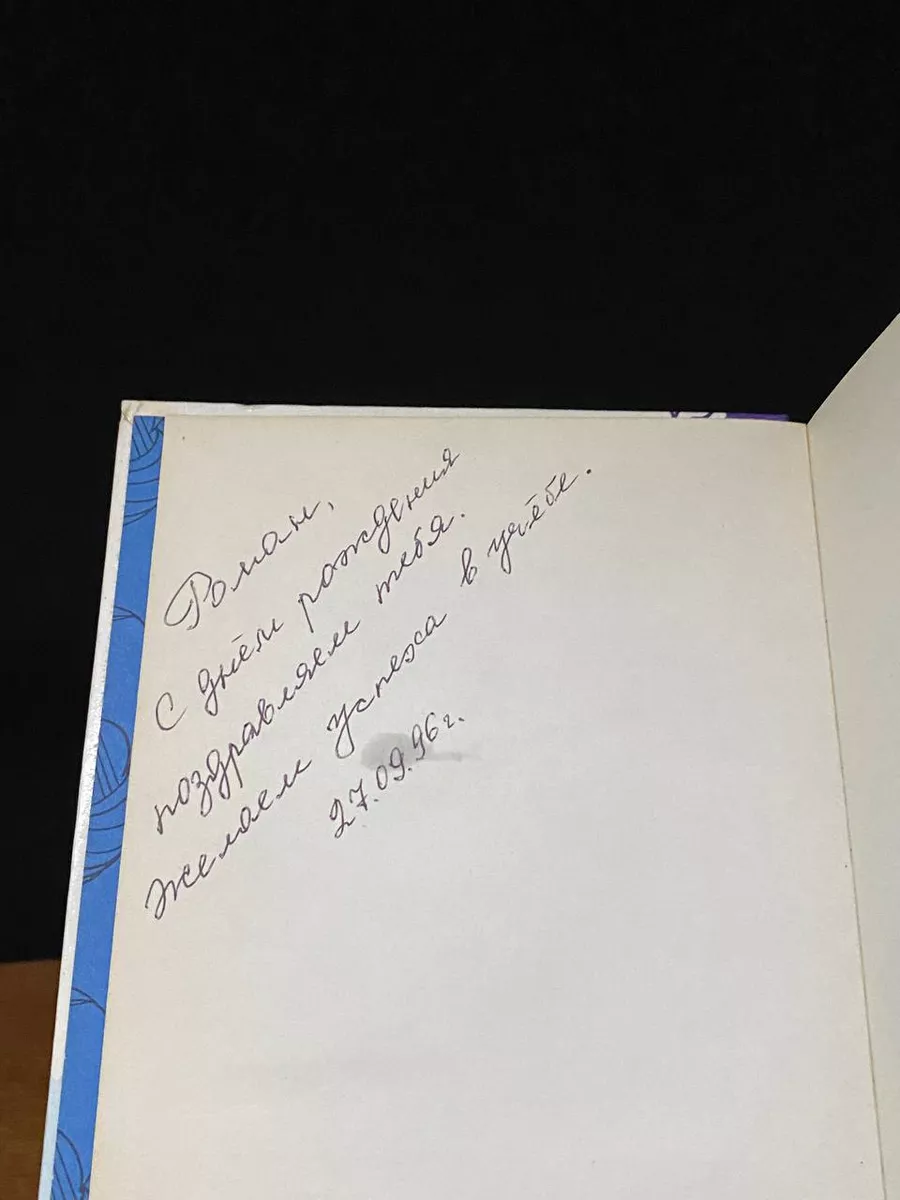 Роман,
С днём рождения
поздравляем тебя.
Желаем успеха в учёбе.
27.09.96 г.